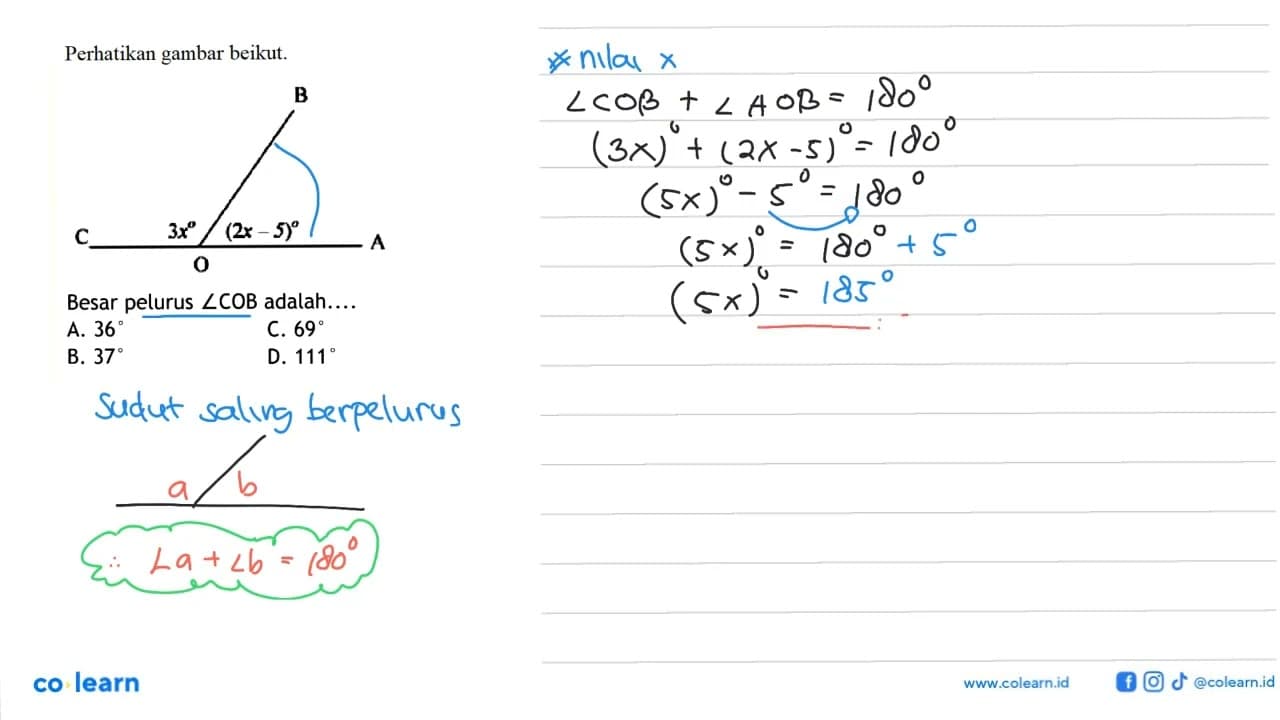 Perhatikan gambar beikut.
B
C 3x° (2x – 5)° A
O
Besar pelurus ∠COB adalah....
A. 36° C. 69°
B. 37° D. 111°
Sudut saling berpelurus
a b
∴ ∠a + ∠b = 180°
* nilai x
∠COB + ∠AOB = 180°
(3x)° + (2x - 5)° = 180°
(5x)° - 5° = 180°
(5x)° = 180° + 5°
(5x)° = 185°
co learn
www.colearn.id @colearn.id